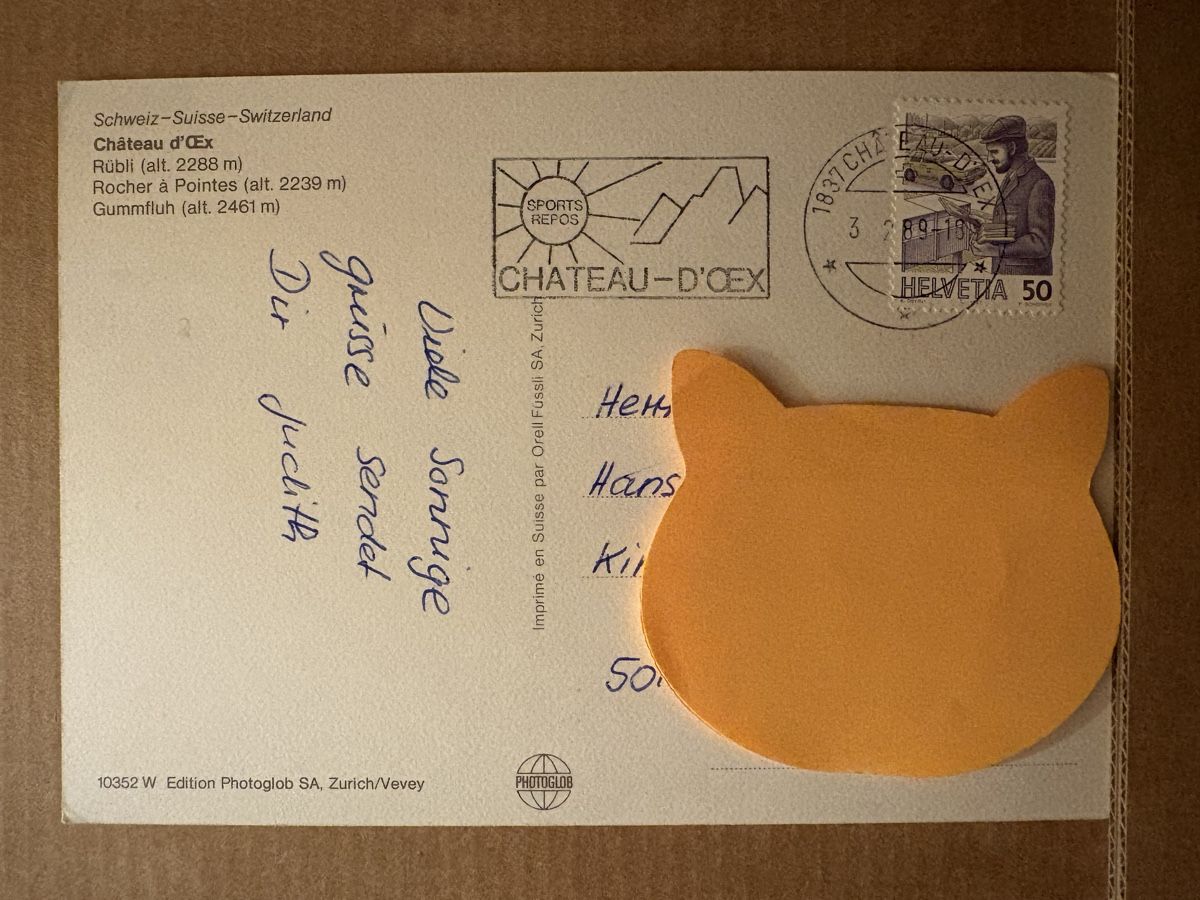 Schweiz–Suisse–Switzerland
Château d'Œx
Rübli (alt. 2288 m)
Rocher à Pointes (alt. 2239 m)
Gummfluh (alt. 2461 m)
SPORTS
REPOS
CHATEAU–D'ŒX
1837 CHÂTEAU-D'ŒX
3 2 89-18
HELVETIA 50
Viele Sonnige
grüsse sendet
Dir Judith
Imprimé en Suisse par Orell Füssli SA, Zurich
Herr
Hans
10352 W Edition Photoglob SA, Zurich/Vevey
PHOTOGLOB